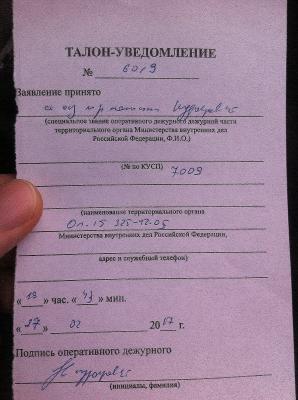 ТАЛОН-УВЕДОМЛЕНИЕ
№ 6019
Заявление принято
(специальное звание оперативного дежурного дежурной части
территориального органа Министерства внутренних дел
Российской Федерации, Ф.И.О.)
(№ по КУСП) 7009
(наименование территориального органа
Оп.15 325-12-05
Министерства внутренних дел Российской Федерации,
адрес и служебный телефон)
« 19 » час. « 43 » мин.
« 27 » 02 2017 г.
Подпись оперативного дежурного
(инициалы, фамилия)